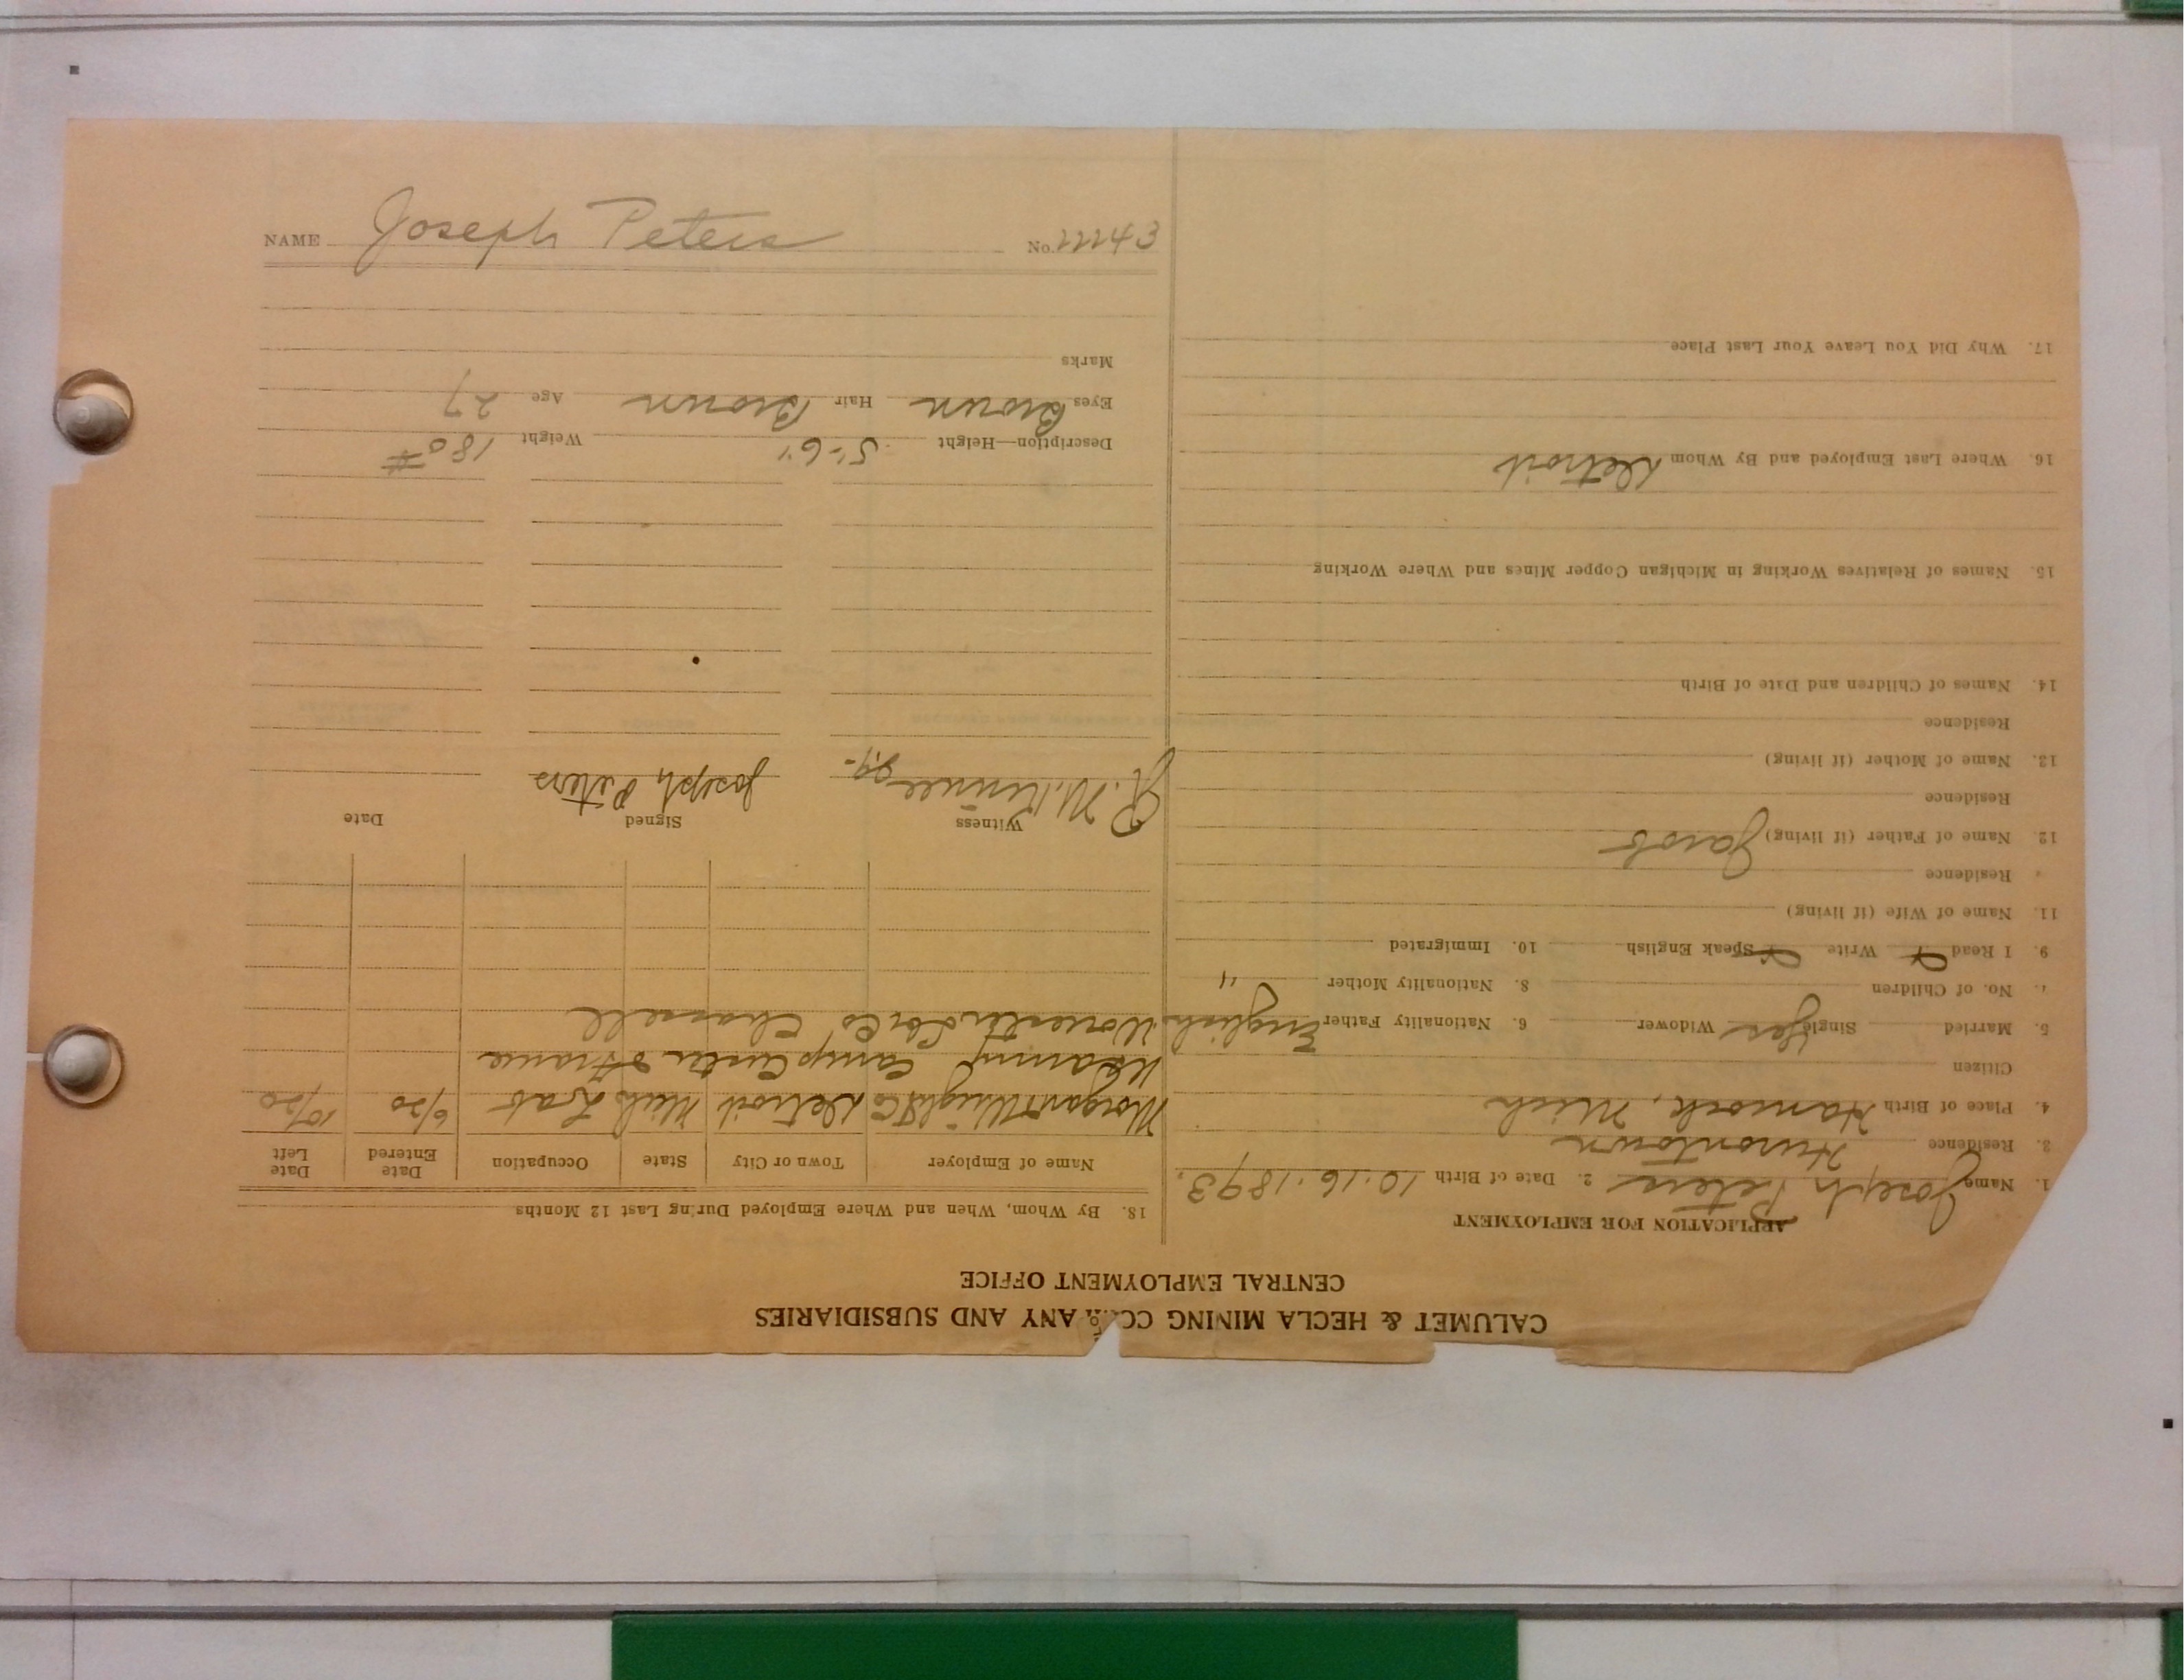 CALUMET & HECLA MINING COMPANY AND SUBSIDIARIES
CENTRAL EMPLOYMENT OFFICE
APPLICATION FOR EMPLOYMENT
1. Name Joseph Peters 2. Date of Birth 10.16.1893.
3. Residence Hurontown
4. Place of Birth Hancock, Mich
Citizen
5. Married Single Yes Widower 6. Nationality Father English
7. No. of Children 8. Nationality Mother "
9. I Read Write Speak English 10. Immigrated
11. Name of Wife (if living)
Residence
12. Name of Father (if living) Jacob
Residence
13. Name of Mother (if living)
Residence
14. Names of Children and Date of Birth
15. Names of Relatives Working in Michigan Copper Mines and Where Working
16. Where Last Employed and By Whom Detroit
17. Why Did You Leave Your Last Place
18. By Whom, When and Where Employed During Last 12 Months
Name of Employer Town or City State Occupation Date Entered Date Left
Morgan & Wright Co Detroit Mich Lab 6/20 10/20
US army Camp Custer & France
Worcester Lbr Co Chassell
Witness Signed Date
Joseph Peters
Description—Height 5'-6" Weight 180#
Eyes Brown Hair Brown Age 27
Marks
NAME Joseph Peters No. 22243